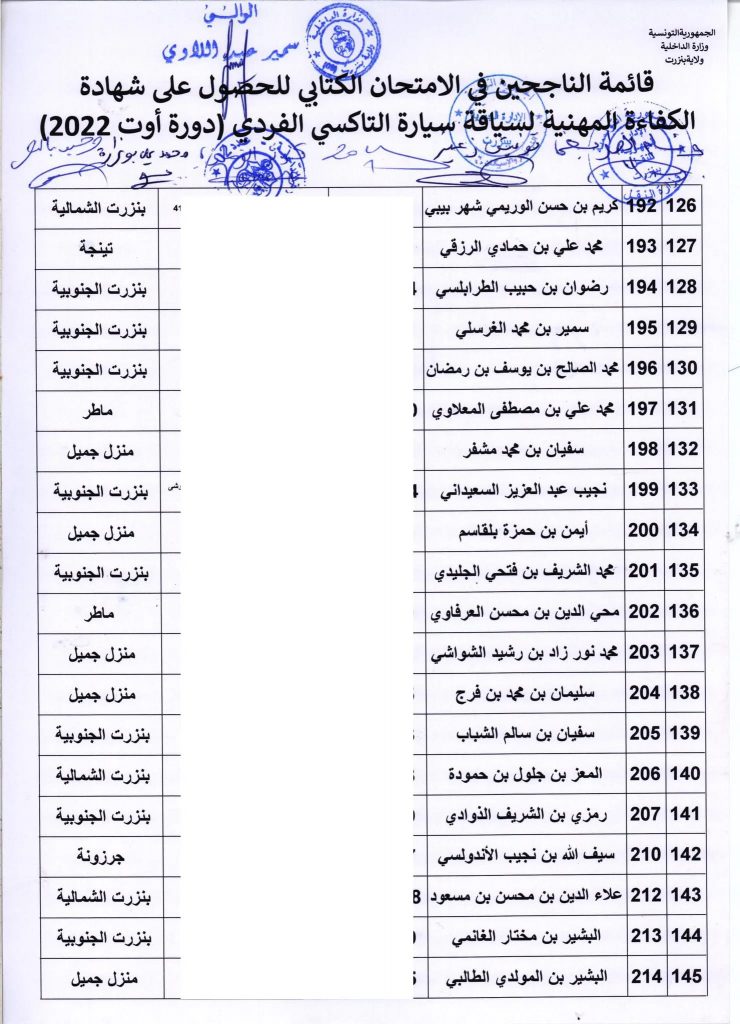 الجمهورية التونسية
وزارة الداخلية
ولاية بنزرت
الوالي
سمير عبد اللاوي
قائمة الناجحين في الامتحان الكتابي للحصول على شهادة
الكفاءة المهنية لسياقة سيارة التاكسي الفردي (دورة أوت 2022)
126 192 كريم بن حسن الوريمي شهر بيبي 41 بنزرت الشمالية
127 193 محمد علي بن حمادي الرزقي تينجة
128 194 رضوان بن حبيب الطرابلسي بنزرت الجنوبية
129 195 سمير بن محمد الغرسلي بنزرت الجنوبية
130 196 محمد الصالح بن يوسف بن رمضان بنزرت الجنوبية
131 197 محمد علي بن مصطفى المعلاوي ماطر
132 198 سفيان بن محمد مشفر منزل جميل
133 199 نجيب عبد العزيز السعيداني بنزرت الجنوبية
134 200 أيمن بن حمزة بلقاسم منزل جميل
135 201 محمد الشريف بن فتحي الجليدي بنزرت الجنوبية
136 202 محي الدين بن محسن العرفاوي ماطر
137 203 محمد نور زاد بن رشيد الشواشي منزل جميل
138 204 سليمان بن محمد بن فرج منزل جميل
139 205 سفيان بن سالم الشباب بنزرت الجنوبية
140 206 المعز بن جلول بن حمودة بنزرت الشمالية
141 207 رمزي بن الشريف الذوادي بنزرت الجنوبية
142 210 سيف الله بن نجيب الأندولسي جرزونة
143 212 علاء الدين بن محسن بن مسعود 8 بنزرت الشمالية
144 213 البشير بن مختار الغانمي بنزرت الجنوبية
145 214 البشير بن المولدي الطالبي منزل جميل